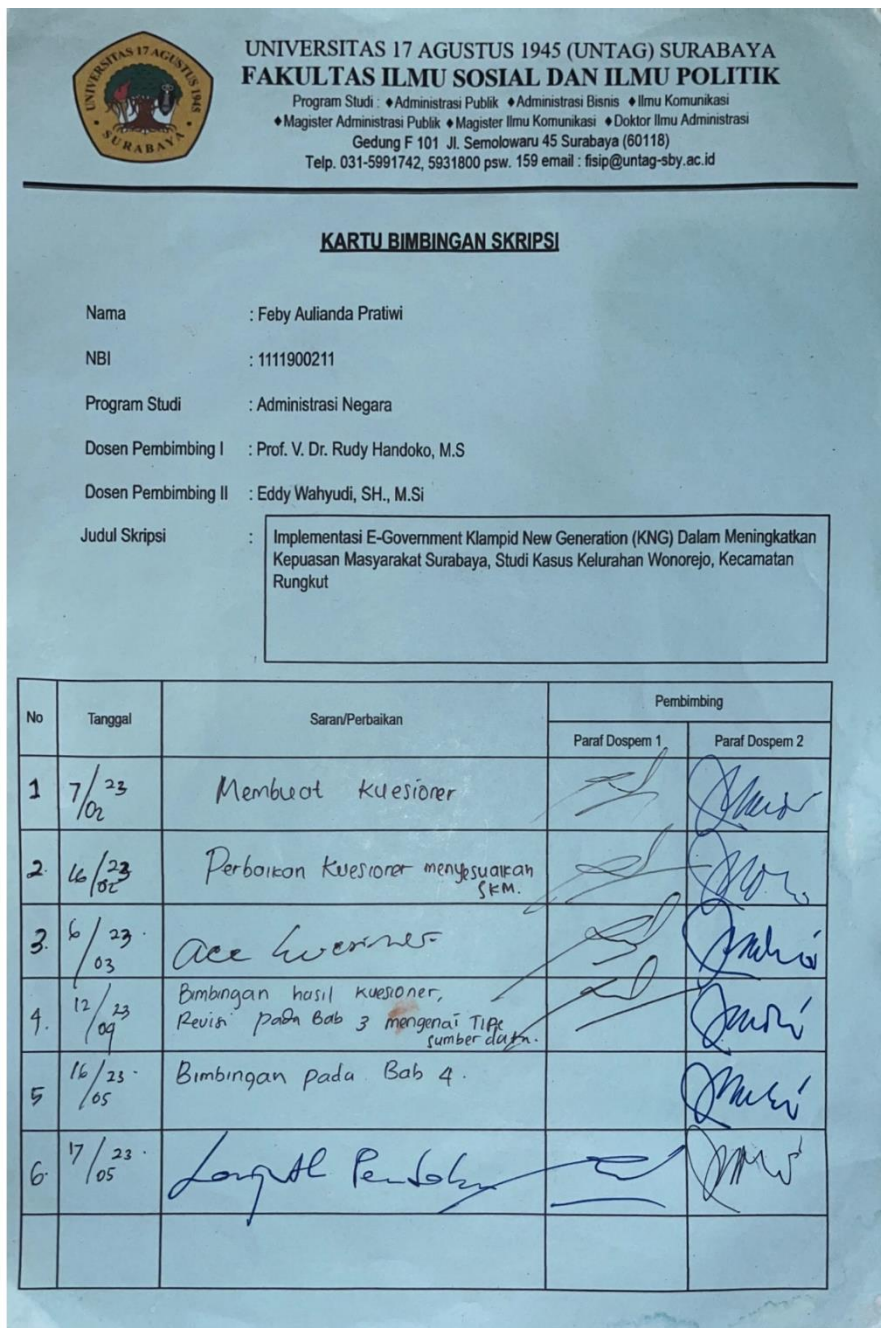 UNIVERSITAS 17 AGUSTUS 1945
SURABAYA
UNIVERSITAS 17 AGUSTUS 1945 (UNTAG) SURABAYA
FAKULTAS ILMU SOSIAL DAN ILMU POLITIK
Program Studi : ♦Administrasi Publik ♦Administrasi Bisnis ♦Ilmu Komunikasi
♦Magister Administrasi Publik ♦Magister Ilmu Komunikasi ♦Doktor Ilmu Administrasi
Gedung F 101 Jl. Semolowaru 45 Surabaya (60118)
Telp. 031-5991742, 5931800 psw. 159 email : fisip@untag-sby.ac.id
KARTU BIMBINGAN SKRIPSI
Nama : Feby Aulianda Pratiwi
NBI : 1111900211
Program Studi : Administrasi Negara
Dosen Pembimbing I : Prof. V. Dr. Rudy Handoko, M.S
Dosen Pembimbing II : Eddy Wahyudi, SH., M.Si
Judul Skripsi : Implementasi E-Government Klampid New Generation (KNG) Dalam Meningkatkan
Kepuasan Masyarakat Surabaya, Studi Kasus Kelurahan Wonorejo, Kecamatan
Rungkut
No Tanggal Saran/Perbaikan Pembimbing
Paraf Dospem 1 Paraf Dospem 2
1 7/02 23 Membuat Kuesioner
2. 16/02 23 Perbaikan Kuesioner menyesuaikan
SKM.
3. 6/03 23. acc kuesioner
4. 12/04 23 Bimbingan hasil kuesioner,
Revisi pada Bab 3 mengenai Tipe
sumber data.
5 16/05 23. Bimbingan pada Bab 4.
6. 17/05 23.